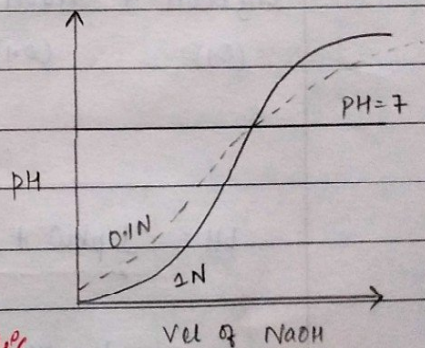 PH = 7
PH
0.1N
1N
Vol of NaOH